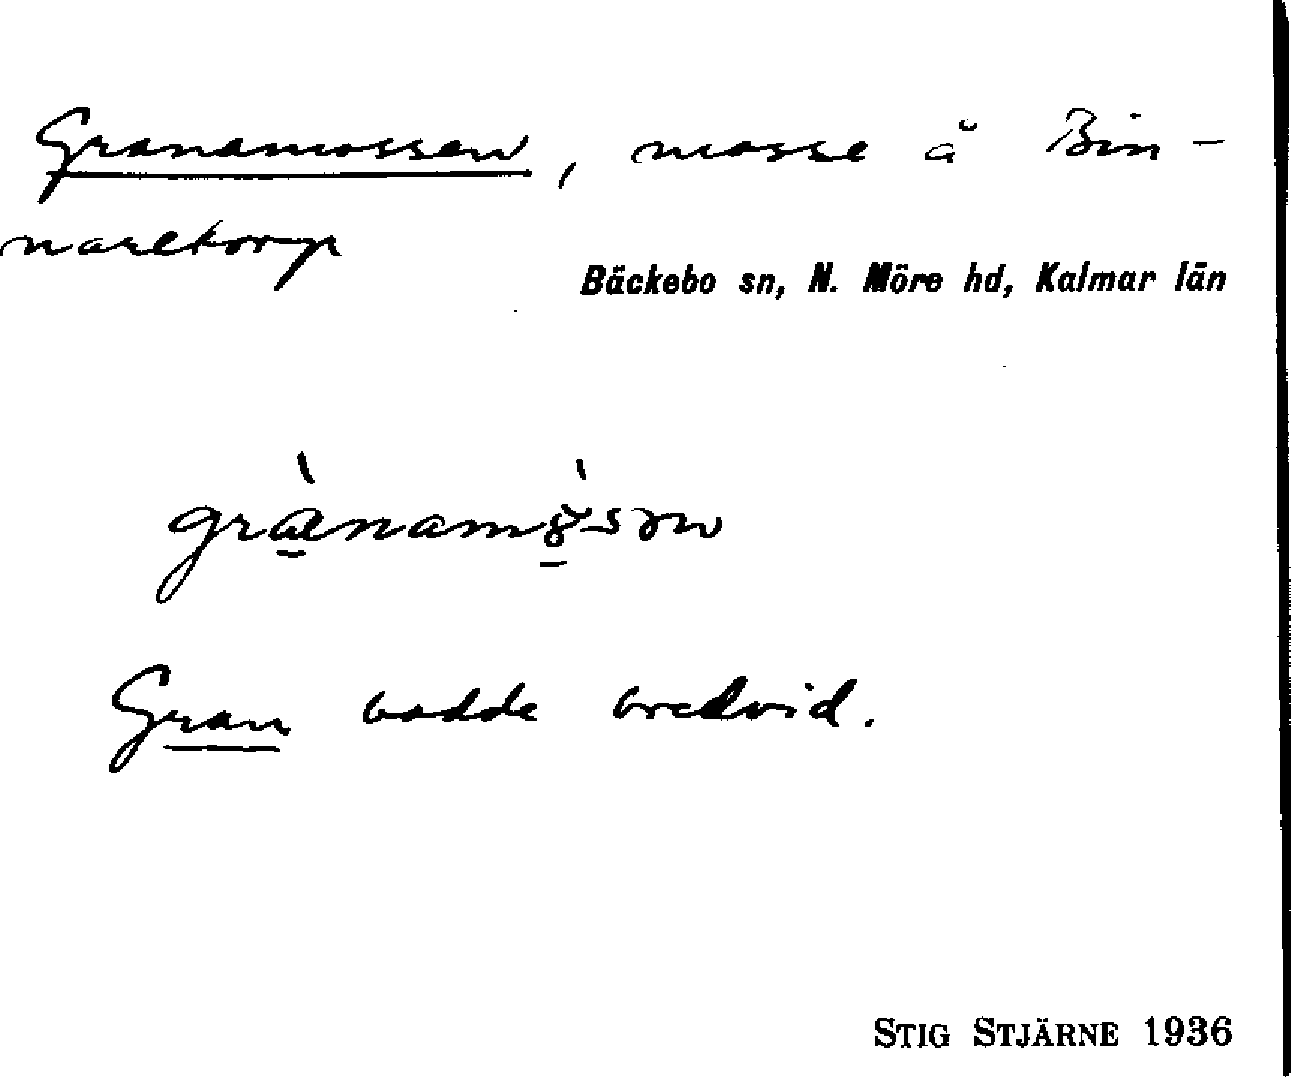 Granamossen, mosse å Bin-
naretorp
Bäckebo sn, N. Möre hd, Kalmar län
Gran bodde bredvid.
STIG STJÄRNE 1936